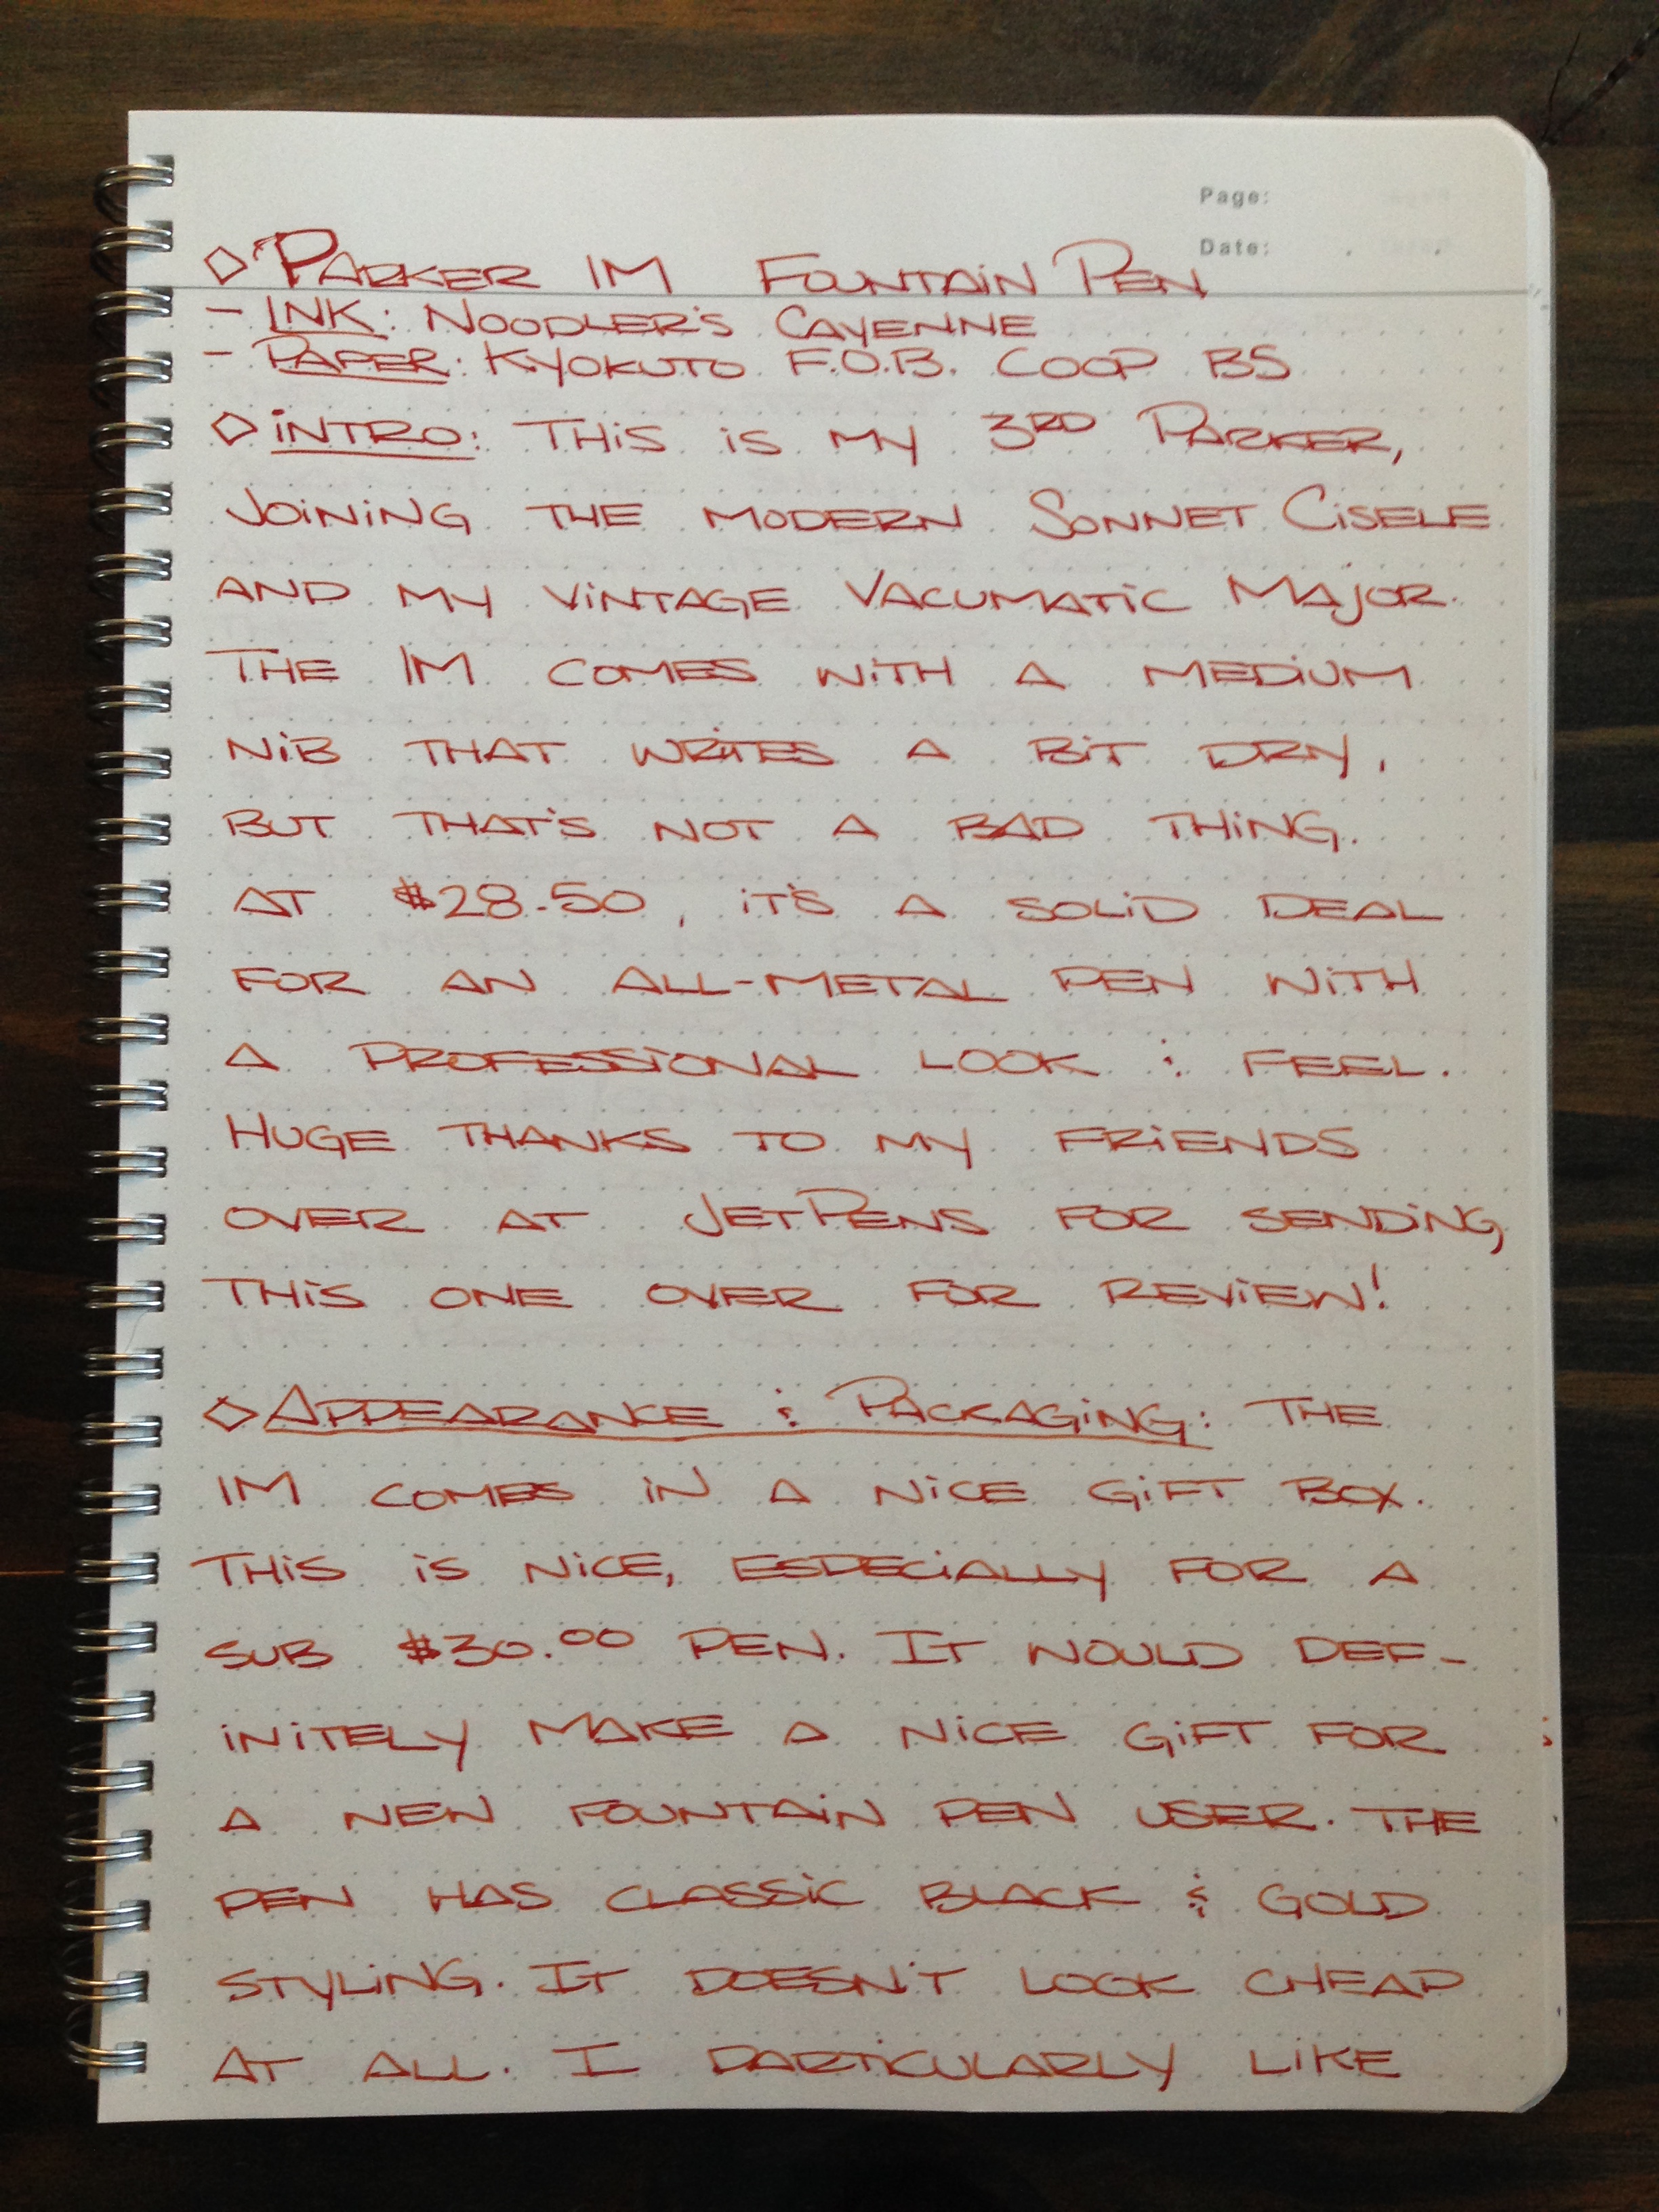 Page:
Date:
◇ PARKER IM FOUNTAIN PEN
- INK: NOODLER'S CAYENNE
- PAPER: KYOKUTO F.O.B. COOP B5
◇ INTRO: THIS IS MY 3RD PARKER,
JOINING THE MODERN SONNET CISELE
AND MY VINTAGE VACUMATIC MAJOR.
THE IM COMES WITH A MEDIUM
NIB THAT WRITES A BIT DRY,
BUT THAT'S NOT A BAD THING.
AT $28.50, IT'S A SOLID DEAL
FOR AN ALL-METAL PEN WITH
A PROFESSIONAL LOOK & FEEL.
HUGE THANKS TO MY FRIENDS
OVER AT JETPENS FOR SENDING
THIS ONE OVER FOR REVIEW!
◇ APPEARANCE & PACKAGING: THE
IM COMES IN A NICE GIFT BOX.
THIS IS NICE, ESPECIALLY FOR A
SUB $30.00 PEN. IT WOULD DEF-
INITELY MAKE A NICE GIFT FOR
A NEW FOUNTAIN PEN USER. THE
PEN HAS CLASSIC BLACK & GOLD
STYLING. IT DOESN'T LOOK CHEAP
AT ALL. I PARTICULARLY LIKE